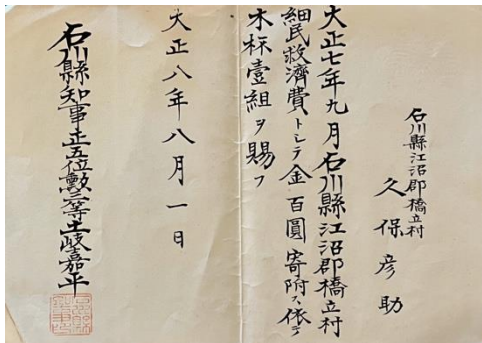 石川縣江沼郡橋立村
久保彦助
大正七年九月石川縣江沼郡橋立村
細民救濟費トシテ金百圓寄附ス依テ
木杯壹組ヲ賜フ
大正八年八月一日
石川縣知事正五位勲三等土岐嘉平